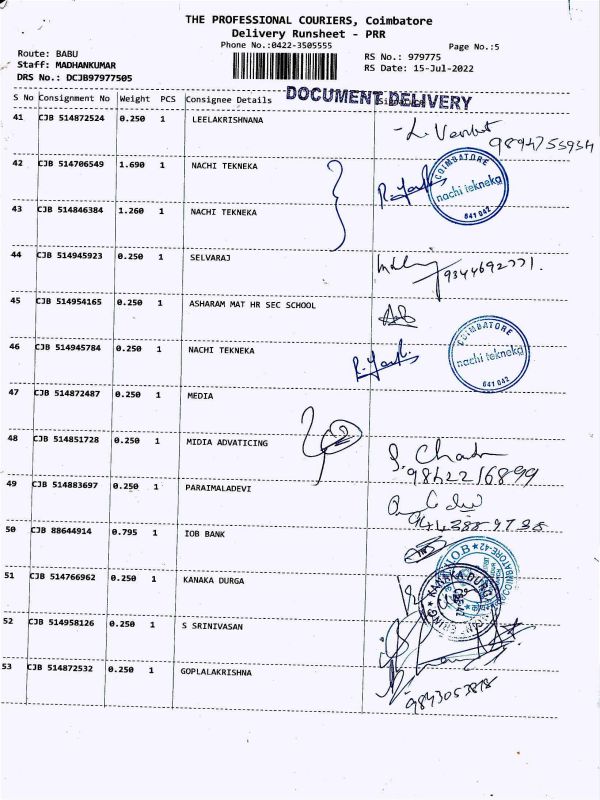 THE PROFESSIONAL COURIERS, Coimbatore
Delivery Runsheet - PRR
Phone No.:0422-3505555
Page No.:5
Route: BABU
Staff: MADHANKUMAR
DRS No.: DCJB97977505
RS No.: 979775
RS Date: 15-Jul-2022
S No Consignment No Weight PCS Consignee Details
DOCUMENT DELIVERY
41 CJB 514872524 0.250 1 LEELAKRISHNANA
42 CJB 514706549 1.690 1 NACHI TEKNEKA
COIMBATORE
nachi tekneka
641 042
43 CJB 514846384 1.260 1 NACHI TEKNEKA
44 CJB 514945923 0.250 1 SELVARAJ
9344692771.
45 CJB 514954165 0.250 1 ASHARAM MAT HR SEC SCHOOL
46 CJB 514945784 0.250 1 NACHI TEKNEKA
COIMBATORE
nachi tekneka
641 042
47 CJB 514872487 0.250 1 MEDIA
48 CJB 514851728 0.250 1 MIDIA ADVATICING
9842216899
49 CJB 514883697 0.250 1 PARAIMALADEVI
50 CJB 88644914 0.795 1 IOB BANK
51 CJB 514766962 0.250 1 KANAKA DURGA
KANAKA DURGA
52 CJB 514958126 0.250 1 S SRINIVASAN
53 CJB 514872532 0.250 1 GOPLALAKRISHNA